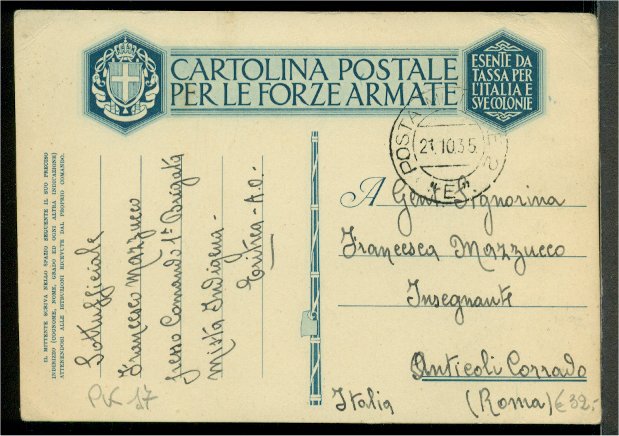 CARTOLINA POSTALE
PER LE FORZE ARMATE
ESENTE DA
TASSA PER
L'ITALIA E
SVE COLONIE
POSTA
21.10.35
"E"
IL MITTENTE SCRIVA NELLO SPAZIO SEGUENTE IL SUO PRECISO
INDIRIZZO (COGNOME, NOME, GRADO ED OGNI ALTRA INDICAZIONE)
ATTENENDOSI ALLE ISTRUZIONI RICEVUTE DAL PROPRIO COMANDO.
Sottufficiale
Francesco Mazzucco
presso Comando 1ª Brigata
mista Indigena -
Eritrea - A.O.
A Gent. Signorina
Francesca Mazzucco
Insegnante
Anticoli Corrado
Italia (Roma)
€ 32.-